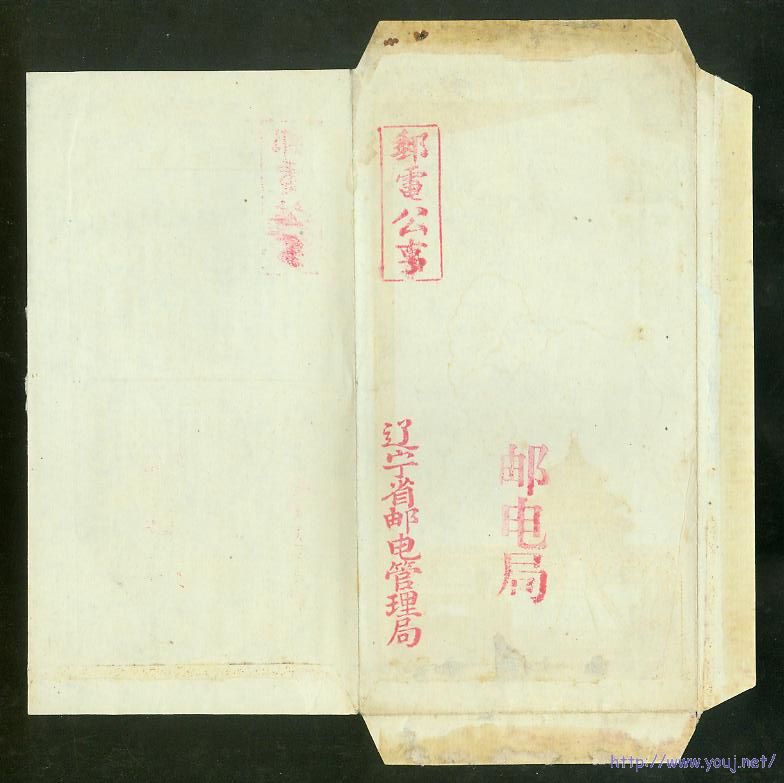 郵電公事
辽宁省邮电管理局
邮电局
http://www.youj.net/